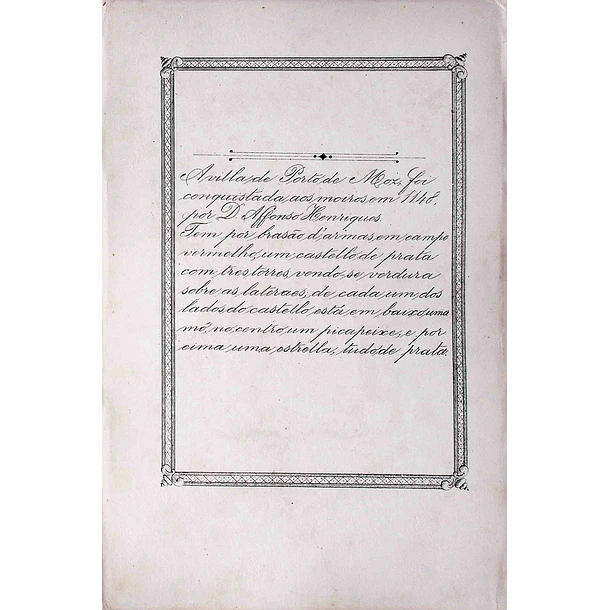 A villa de Porto de Moz, foi
conquistada aos moiros em 1148,
por D. Affonso Henriques.
Tem por brasão d'armas, em campo
vermelho, um castello de prata
com tres torres, vendo-se verdura
sobre as lateraes, de cada um dos
lados do castello está em baixo uma
mó, no centro um picapeixe, e por
cima uma estrella, tudo de prata.